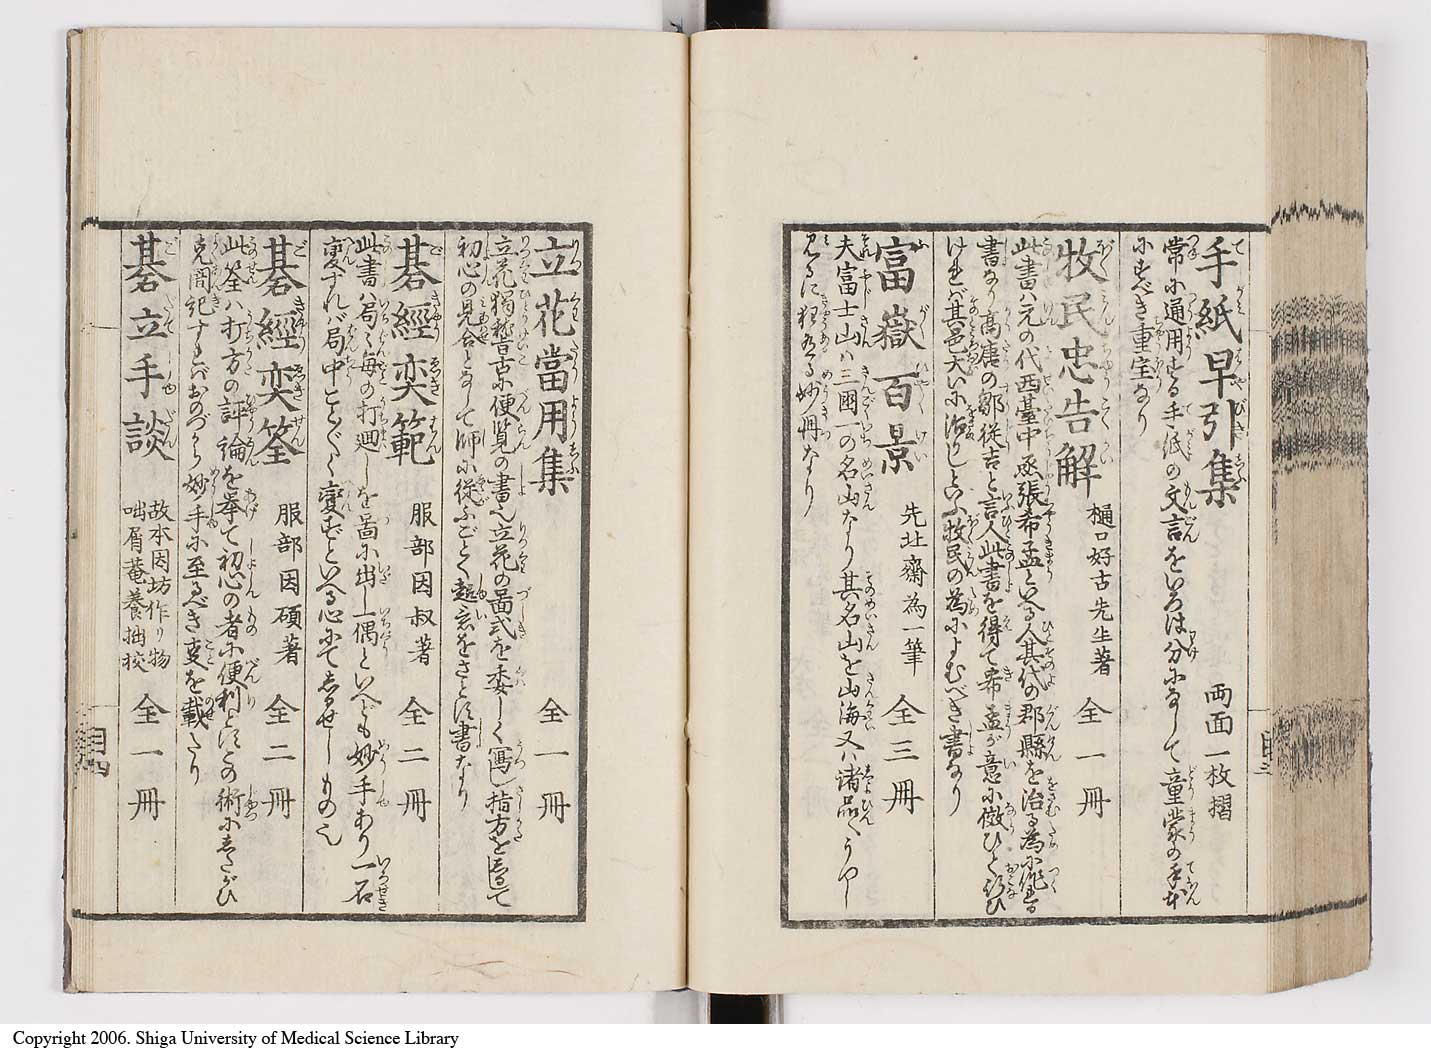 手紙早引集 両面一枚摺
常に通用する手紙の文言をいろは分になして童蒙の手本
にすべき重宝なり
牧民忠告解 樋口好古先生著 全一冊
此書ハ元の代西臺中丞張希孟といへる人其代の郡縣を治る為に作る
書なり高唐の鄒従吉と言人此書を得て希孟が意に倣ひて行ひ
けれバ其邑大いに治りしといふ牧民の為によむべき書なり
富嶽百景 先北齋為一筆 全三冊
夫富士山ハ三國一の名山なり其名山を山海又ハ諸品〱うつし
見るに狂ある妙冊なり
目三
立花當用集 全一冊
立花獨稽古に便覧の書也立花の啚式を委しく寫し指方を
初心の見合となして師に従ふごとく趣意をさとす書なり
碁經奕範 服部因叔著 全二冊
此書ハ局〻毎の打廻しを啚に出し一偶といへども妙手あり一石
変ずれバ局中こと〲く変ずといへる心にてしるせしもの也
碁經奕筌 服部因碩著 全二冊
此筌ハ打方の評論を挙て初心の者に便利とす此術にしたがひ
見聞記すれバおのづから妙手に至るべき事を載たり
碁立手談 故本因坊作リ物 咄屑菴養拙校 全一冊
目四
Copyright 2006. Shiga University of Medical Science Library